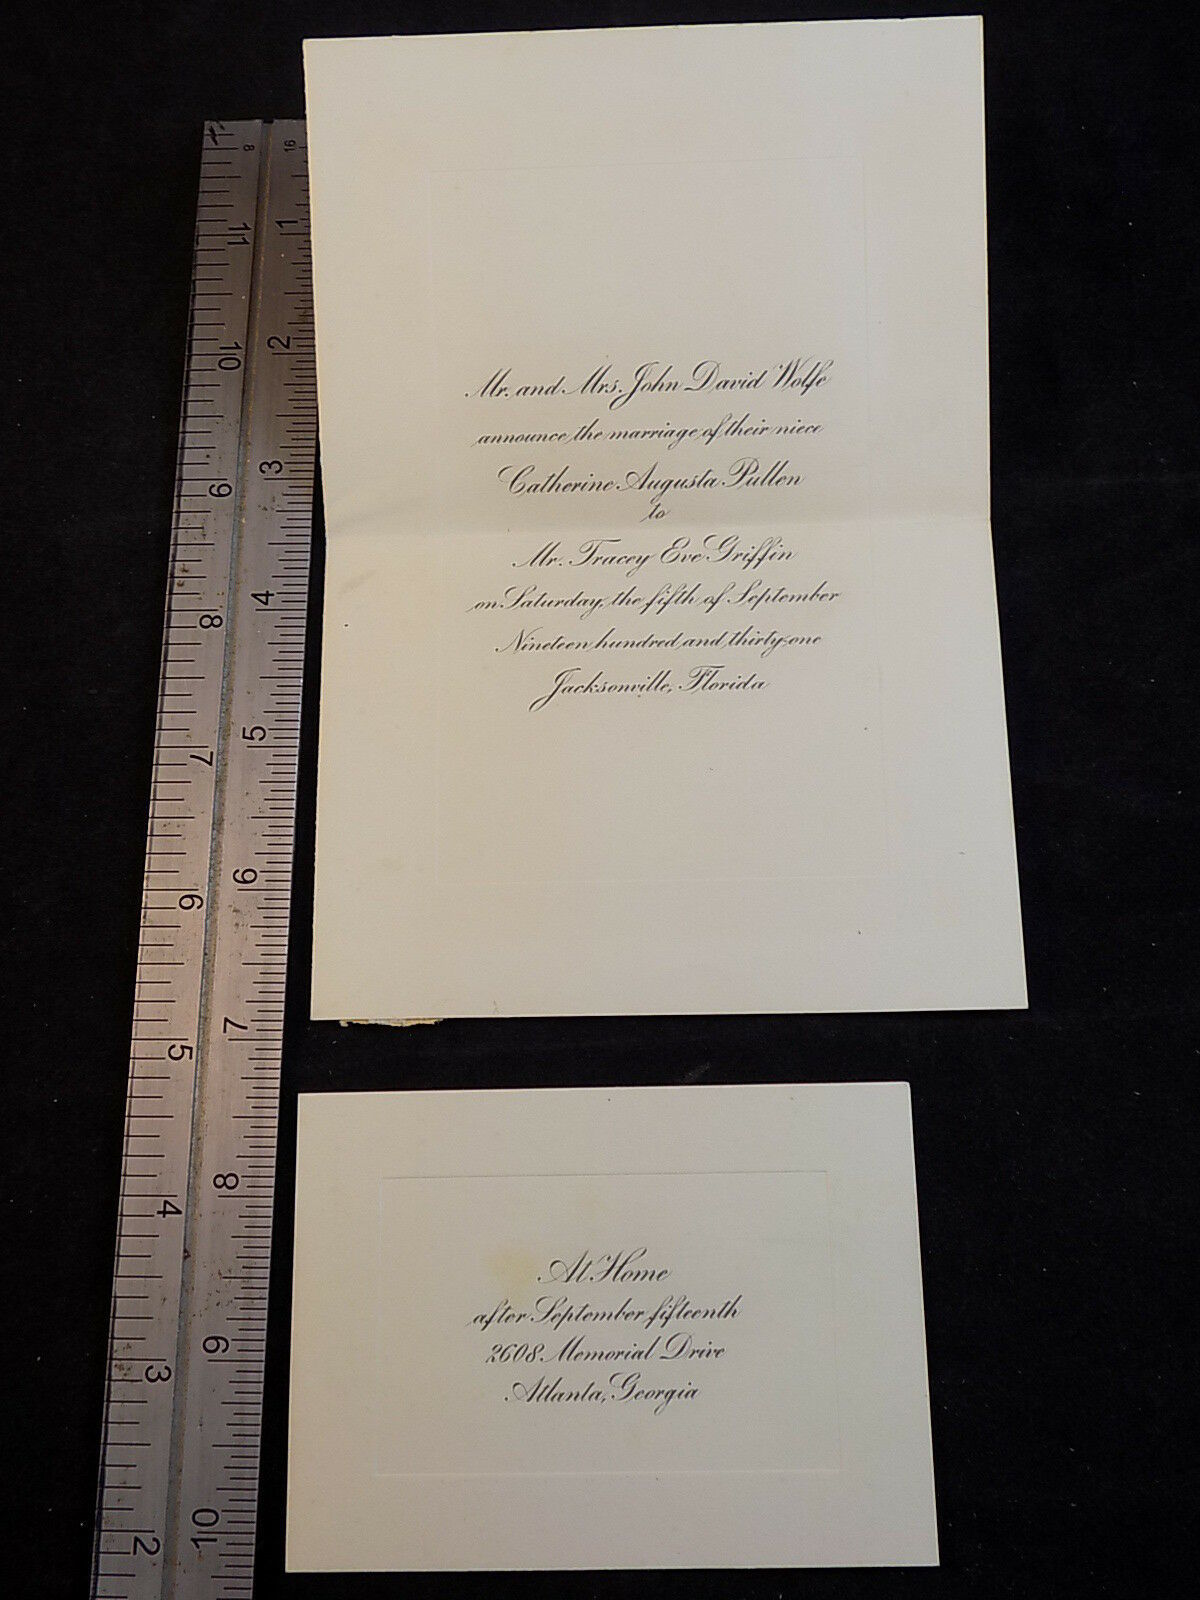 Mr. and Mrs. John David Wolfe
announce the marriage of their niece
Catherine Augusta Pullen
to
Mr. Tracey Eve Griffin
on Saturday, the fifth of September
Nineteen hundred and thirty-one
Jacksonville, Florida
At Home
after September fifteenth
2608 Memorial Drive
Atlanta, Georgia
8
11
10
9
8
7
6
5
4
3
2
16
1
2
3
4
5
6
7
8
9
10